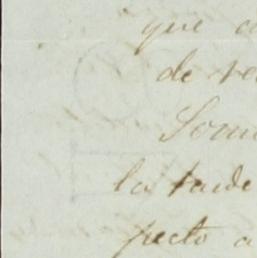 que a
de re
Som
la tarde
pecto a